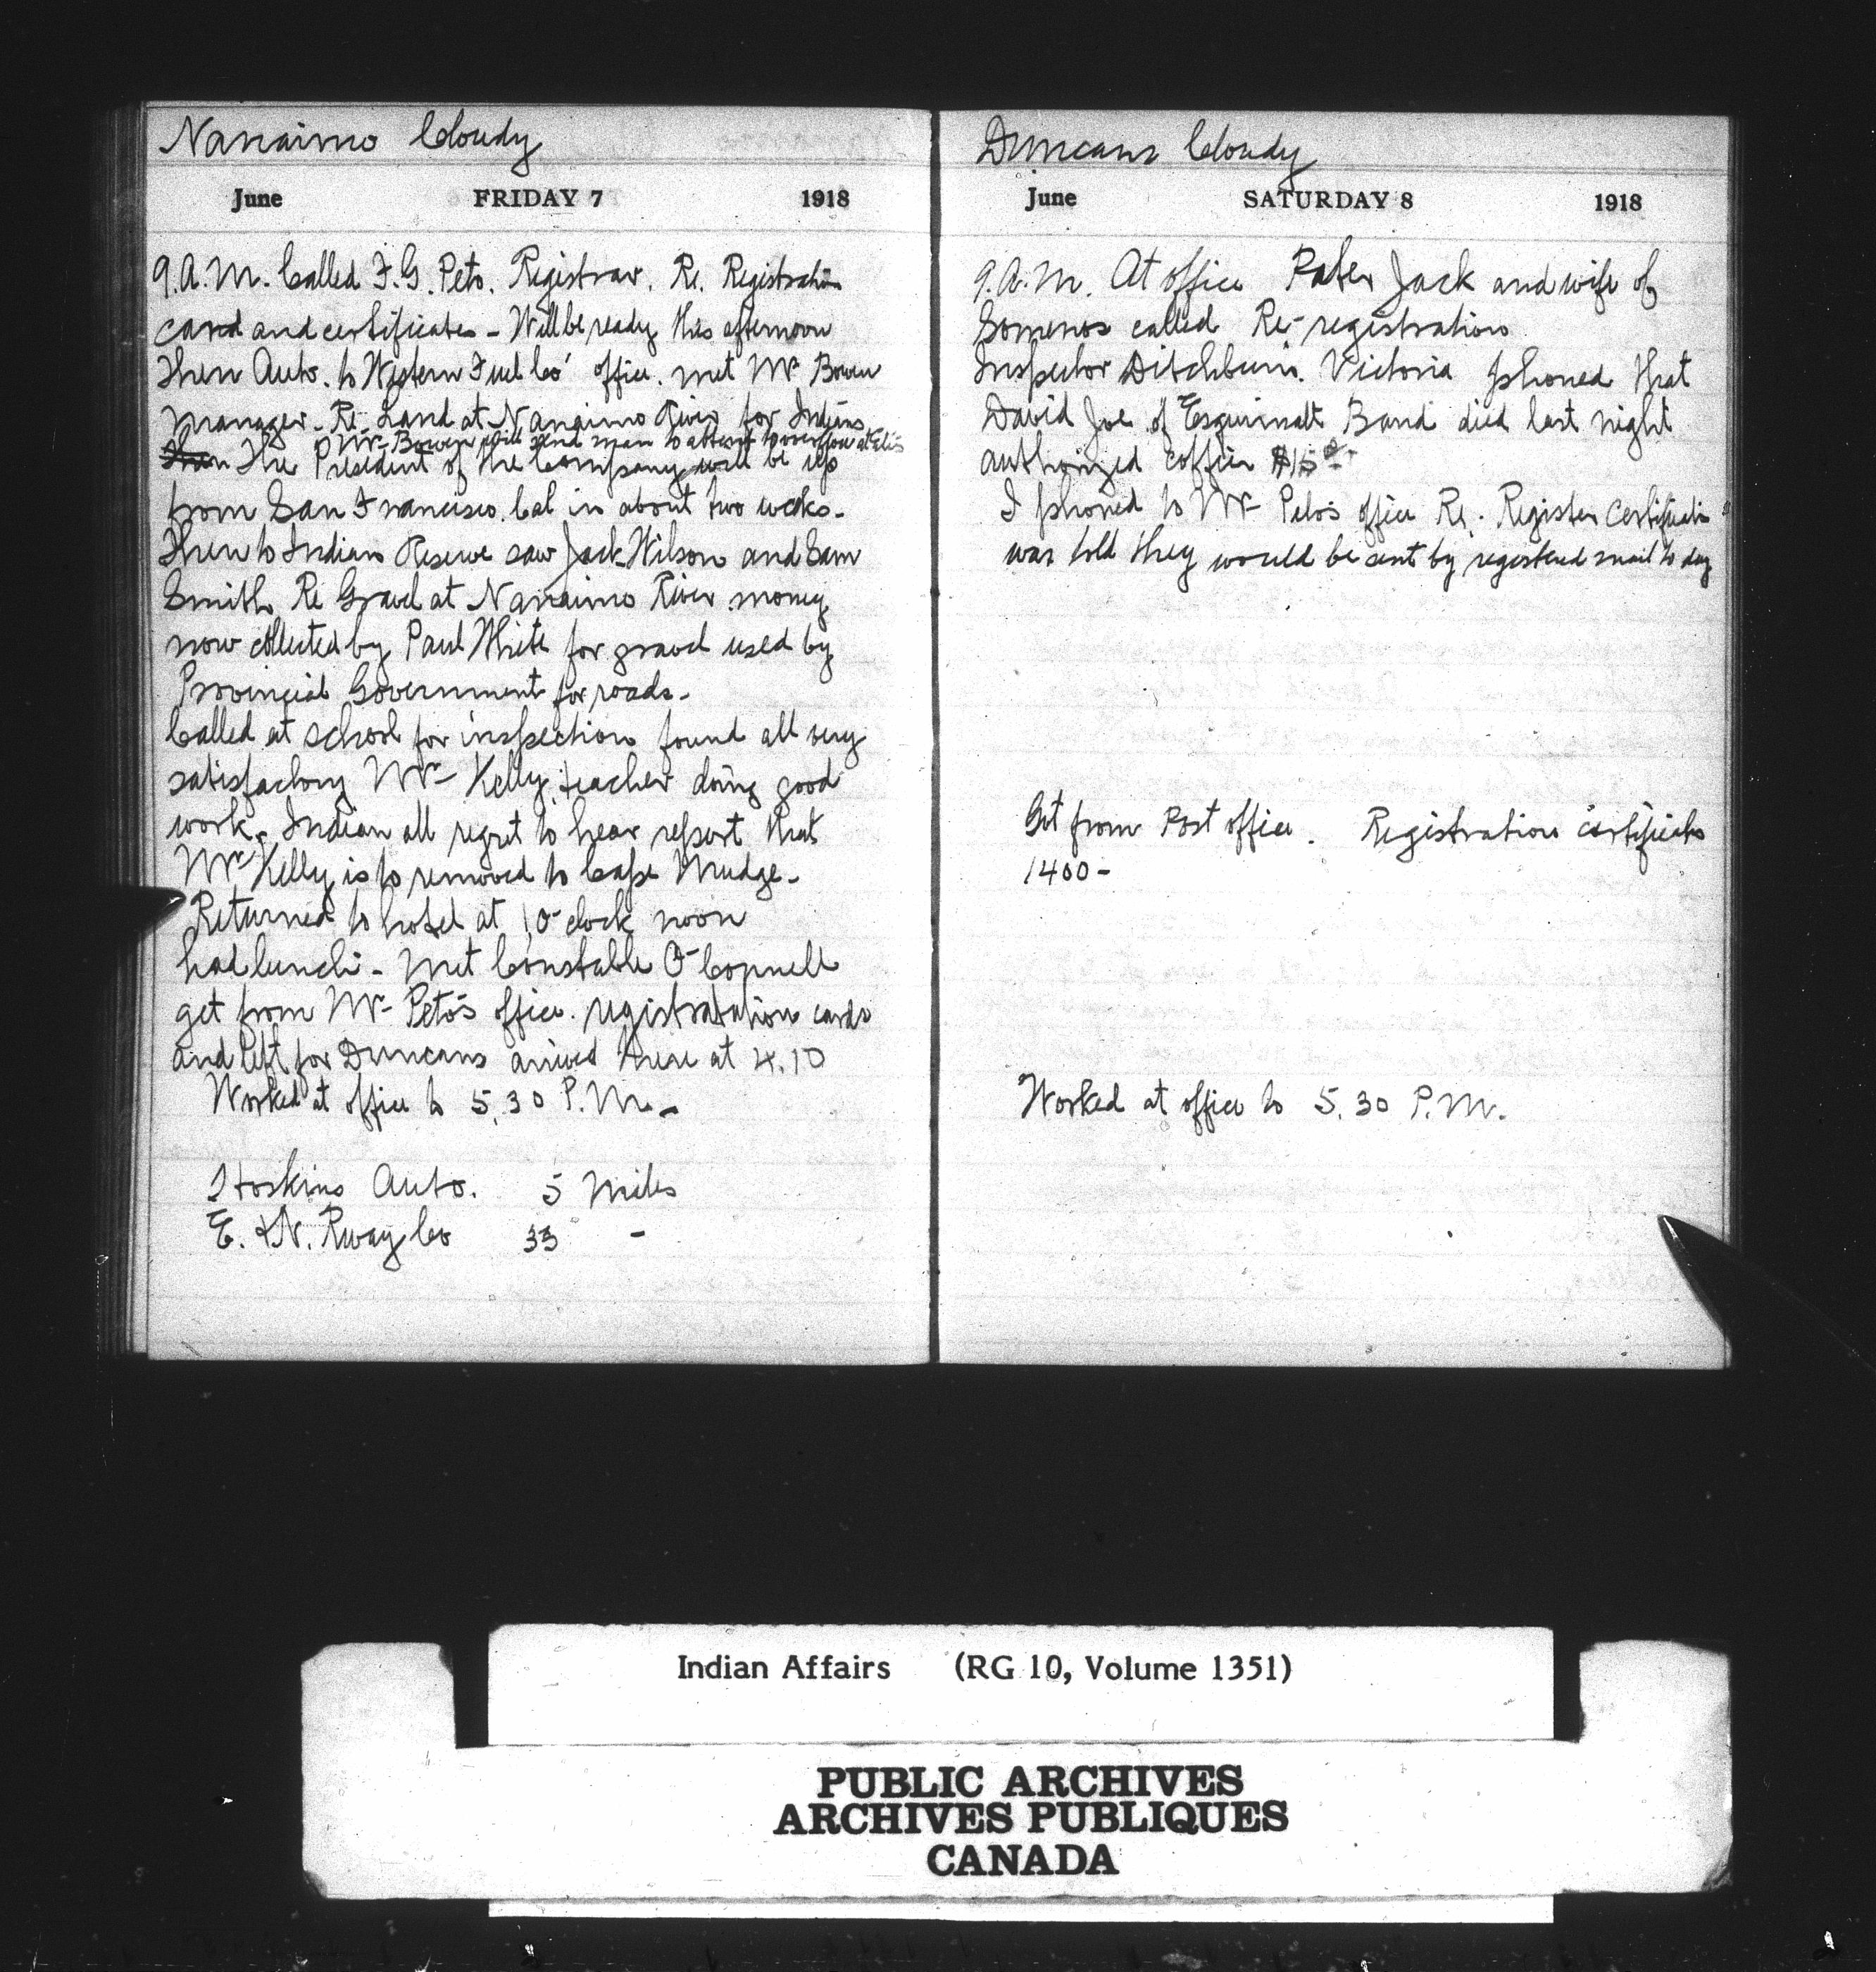 Nanaimo Cloudy
June FRIDAY 7 1918
9.A.M. Called F.G. Peto. Registrar. Re. Registration
card and certificates - Will be ready this afternoon
then Auto. to Western Fuel Co' office. met Mr Bowen
manager. Re. Land at Nanaimo River for Indians
Mr Bowen will send man to attend to overflow at
The President of the Company will be up
from San Francisco. Cal in about two weeks -
then to Indian Reserve saw Jack Wilson and Sam
Smith Re Gravel at Nanaimo River money
now collected by Paul White for gravel used by
Provincial Government for roads -
Called at school for inspection found all very
satisfactory Mr Kelly teacher doing good
work. Indian all regret to hear report that
Mr Kelly is to removed to Cape Mudge -
Returned to hotel at 1 O'clock noon
had lunch - Met Constable O'Connell
get from Mr Peto's office registratation cards
and left for Duncans arrived there at 4.10
Worked at office to 5.30 P.M. -
Hoskins Auto. 5 Miles
E. & N. Rway Co 33 -
Duncans Cloudy
June SATURDAY 8 1918
9.A.M. At office Pater Jack and wife of
Somenos called Re - registration
Inspector Ditchburn. Victoria phoned that
David Joe of Esquimalt Band died last night
authorized coffin $15
I phoned to Mr Peto's office Re. Register Certificate
was told they would be sent by registered mail to day
Get from Post office. Registration certificate
1400 -
Worked at office to 5.30 P.M.
Indian Affairs (RG 10, Volume 1351)
PUBLIC ARCHIVES
ARCHIVES PUBLIQUES
CANADA